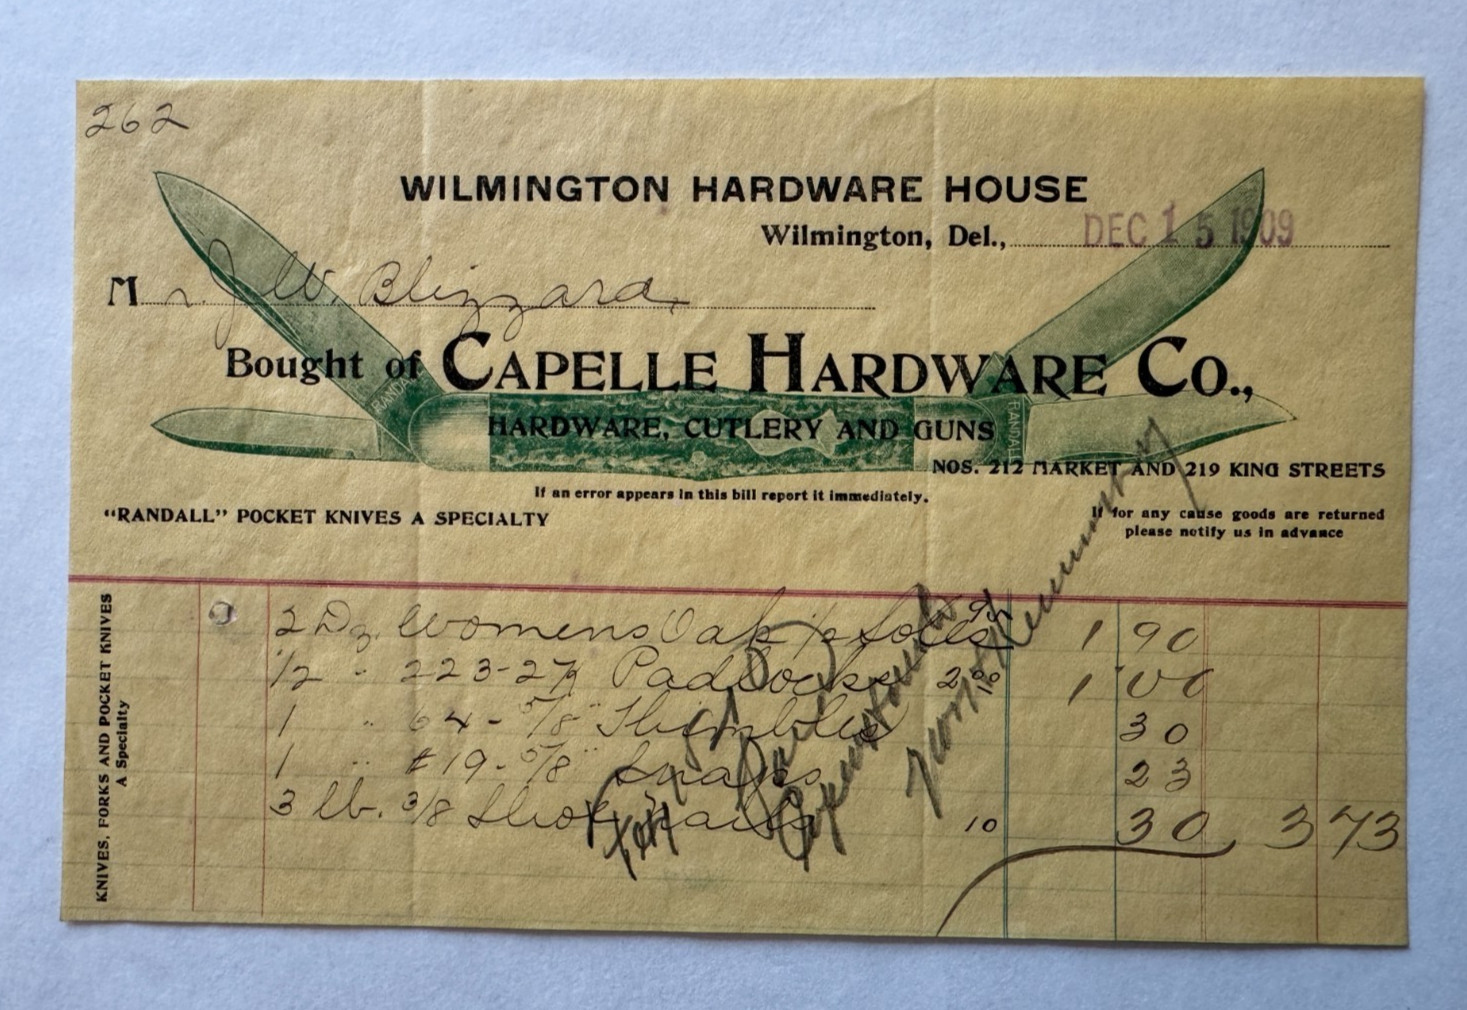 262
WILMINGTON HARDWARE HOUSE
Wilmington, Del., DEC 15 1909
Mr. J. W. Blizzard,
Bought of CAPELLE HARDWARE CO.,
HARDWARE, CUTLERY AND GUNS
NOS. 212 MARKET AND 219 KING STREETS
If an error appears in this bill report it immediately.
"RANDALL" POCKET KNIVES A SPECIALTY
If for any cause goods are returned
please notify us in advance
KNIVES, FORKS AND POCKET KNIVES
A Specialty
RANDALL
RANDALL
2 Dz. Womens Oak 1/2 Soles 95 1 90
1/2 " 223-2 Padlocks 2.00 1 00
1 " 64-5/8" Thimbles 30
1 " #19-5/8" Snaps 23
3 lb. 3/8 Shoe Nails 10 30 3 73